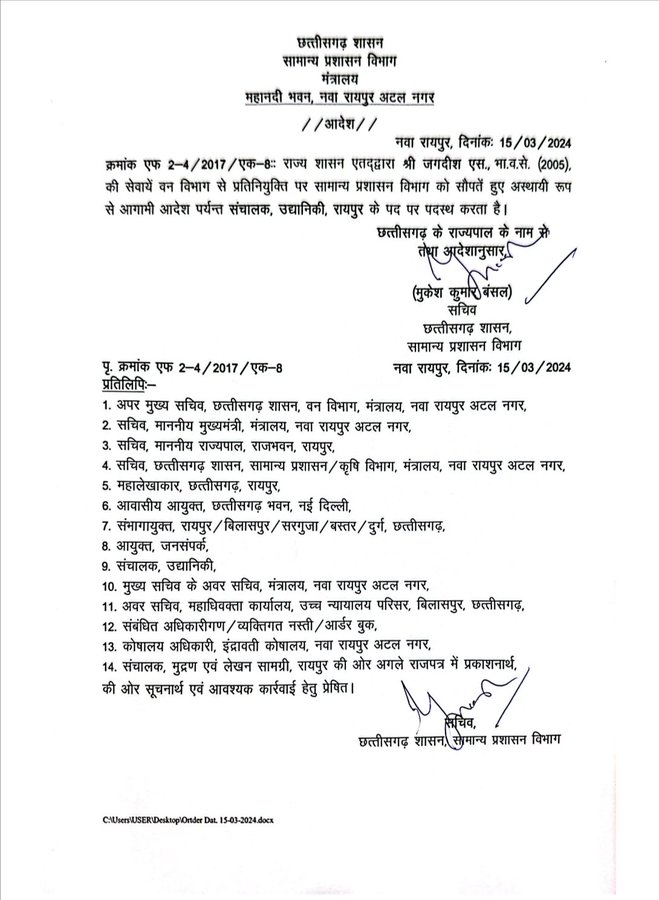 छत्तीसगढ़ शासन
सामान्य प्रशासन विभाग
मंत्रालय
महानदी भवन, नवा रायपुर अटल नगर
//आदेश//
नवा रायपुर, दिनांकः 15/03/2024
क्रमांक एफ 2-4/2017/एक-8:: राज्य शासन एतद्द्वारा श्री जगदीश एस., भा.व.से. (2005),
की सेवायें वन विभाग से प्रतिनियुक्ति पर सामान्य प्रशासन विभाग को सौपतें हुए अस्थायी रूप
से आगामी आदेश पर्यन्त संचालक, उद्यानिकी, रायपुर के पद पर पदस्थ करता है।
छत्तीसगढ़ के राज्यपाल के नाम से
तथा आदेशानुसार,
(मुकेश कुमार बंसल)
सचिव
छत्तीसगढ़ शासन,
सामान्य प्रशासन विभाग
पृ. क्रमांक एफ 2-4/2017/एक-8 नवा रायपुर, दिनांकः 15/03/2024
प्रतिलिपिः–
1. अपर मुख्य सचिव, छत्तीसगढ़ शासन, वन विभाग, मंत्रालय, नवा रायपुर अटल नगर,
2. सचिव, माननीय मुख्यमंत्री, मंत्रालय, नवा रायपुर अटल नगर,
3. सचिव, माननीय राज्यपाल, राजभवन, रायपुर,
4. सचिव, छत्तीसगढ़ शासन, सामान्य प्रशासन/कृषि विभाग, मंत्रालय, नवा रायपुर अटल नगर,
5. महालेखाकार, छत्तीसगढ़, रायपुर,
6. आवासीय आयुक्त, छत्तीसगढ़ भवन, नई दिल्ली,
7. संभागायुक्त, रायपुर/बिलासपुर/सरगुजा/बस्तर/दुर्ग, छत्तीसगढ़,
8. आयुक्त, जनसंपर्क,
9. संचालक, उद्यानिकी,
10. मुख्य सचिव के अवर सचिव, मंत्रालय, नवा रायपुर अटल नगर,
11. अवर सचिव, महाधिवक्ता कार्यालय, उच्च न्यायालय परिसर, बिलासपुर, छत्तीसगढ़,
12. संबंधित अधिकारीगण/व्यक्तिगत नस्ती/आर्डर बुक,
13. कोषालय अधिकारी, इंद्रावती कोषालय, नवा रायपुर अटल नगर,
14. संचालक, मुद्रण एवं लेखन सामग्री, रायपुर की ओर अगले राजपत्र में प्रकाशनार्थ,
की ओर सूचनार्थ एवं आवश्यक कार्रवाई हेतु प्रेषित।
सचिव,
छत्तीसगढ़ शासन, सामान्य प्रशासन विभाग
C:\Users\USER\Desktop\Ortder Dat. 15-03-2024.docx